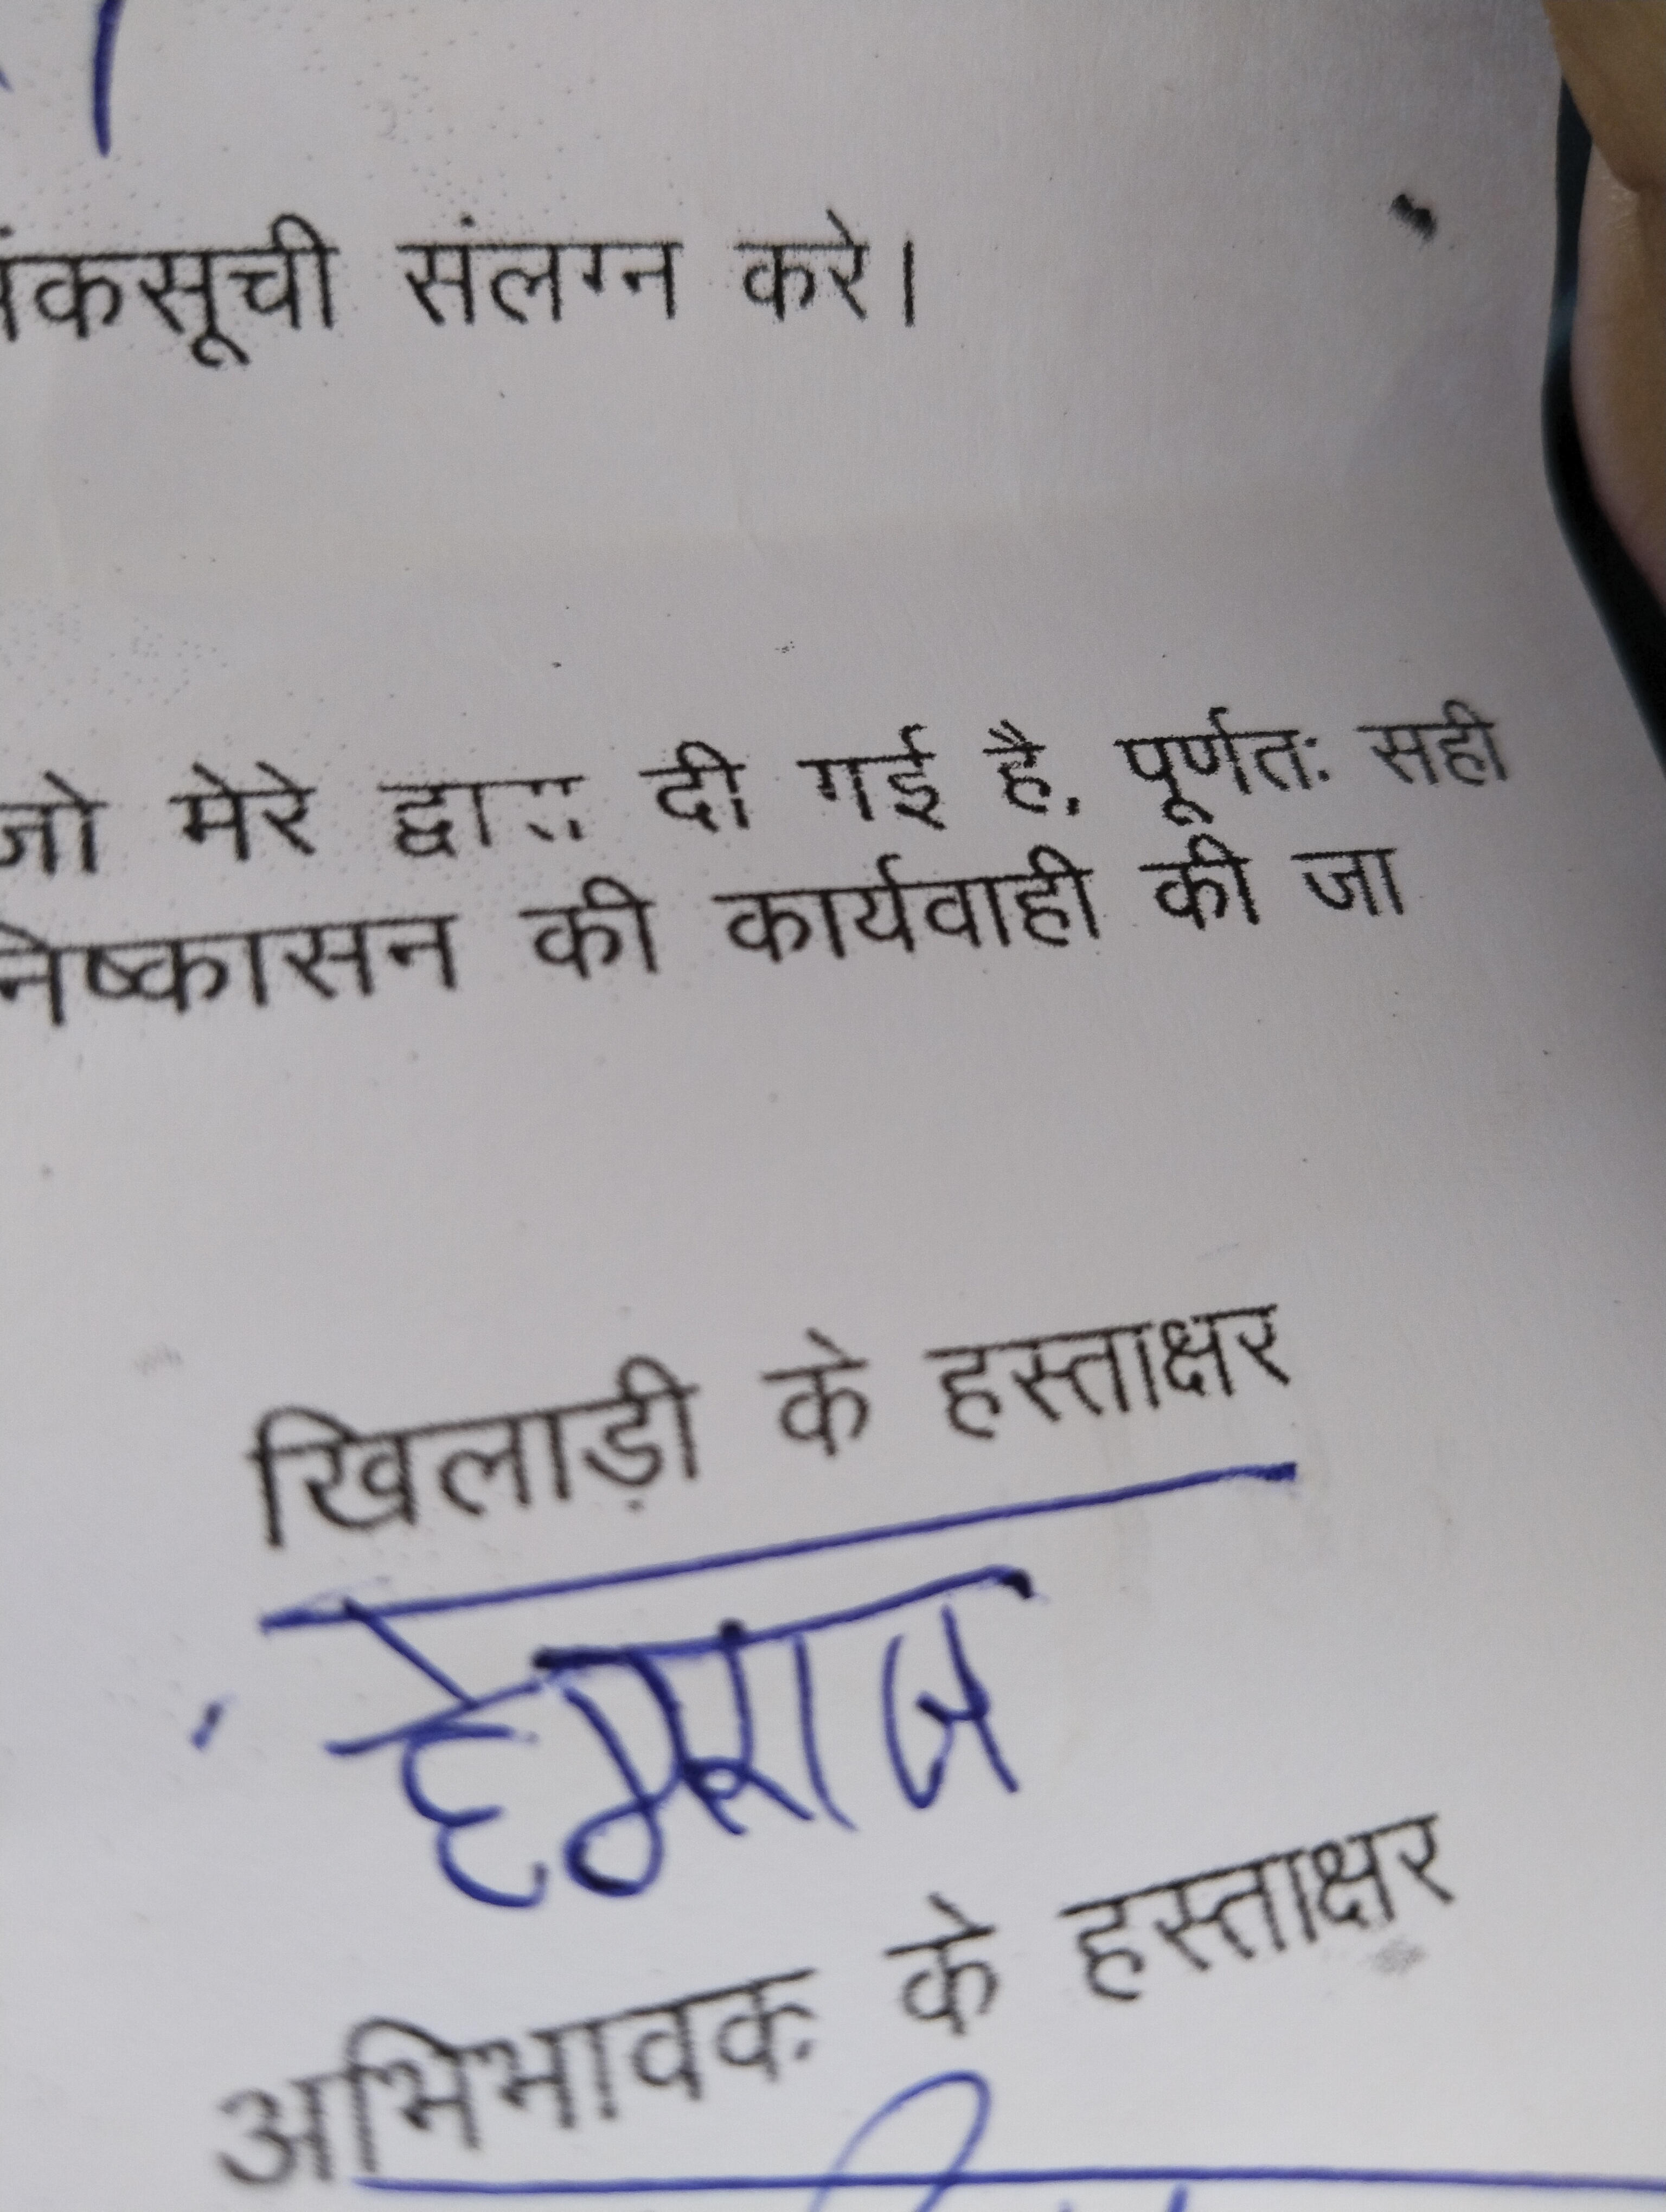 ंकसूची संलग्न करे।
जो मेरे द्वारा दी गई है, पूर्णतः सही
निष्कासन की कार्यवाही की जा
खिलाड़ी के हस्ताक्षर
हेमराज
अभिभावक के हस्ताक्षर